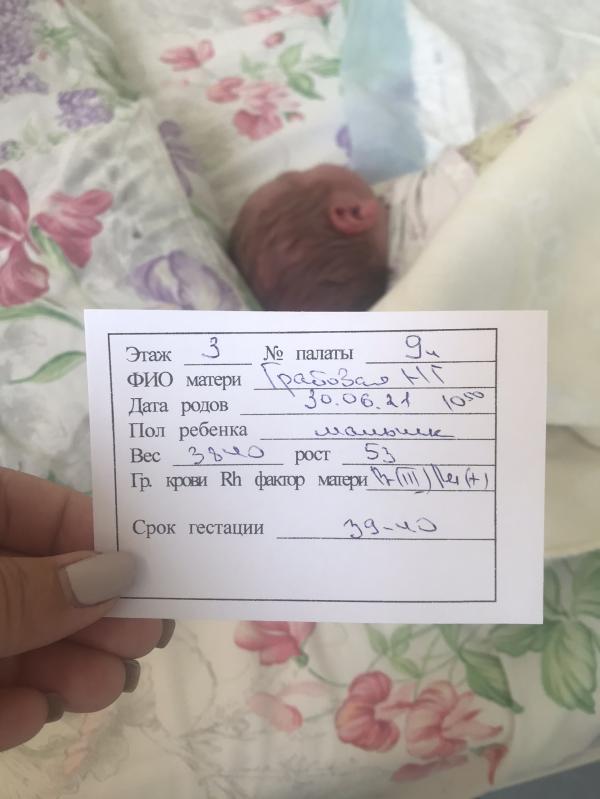 Этаж 3 № палаты 9н
ФИО матери Грабовая НГ
Дата родов 30.06.21 10⁵⁰
Пол ребенка мальчик
Вес 3840 рост 53
Гр. крови Rh фактор матери (III) (+)
Срок гестации 39-40